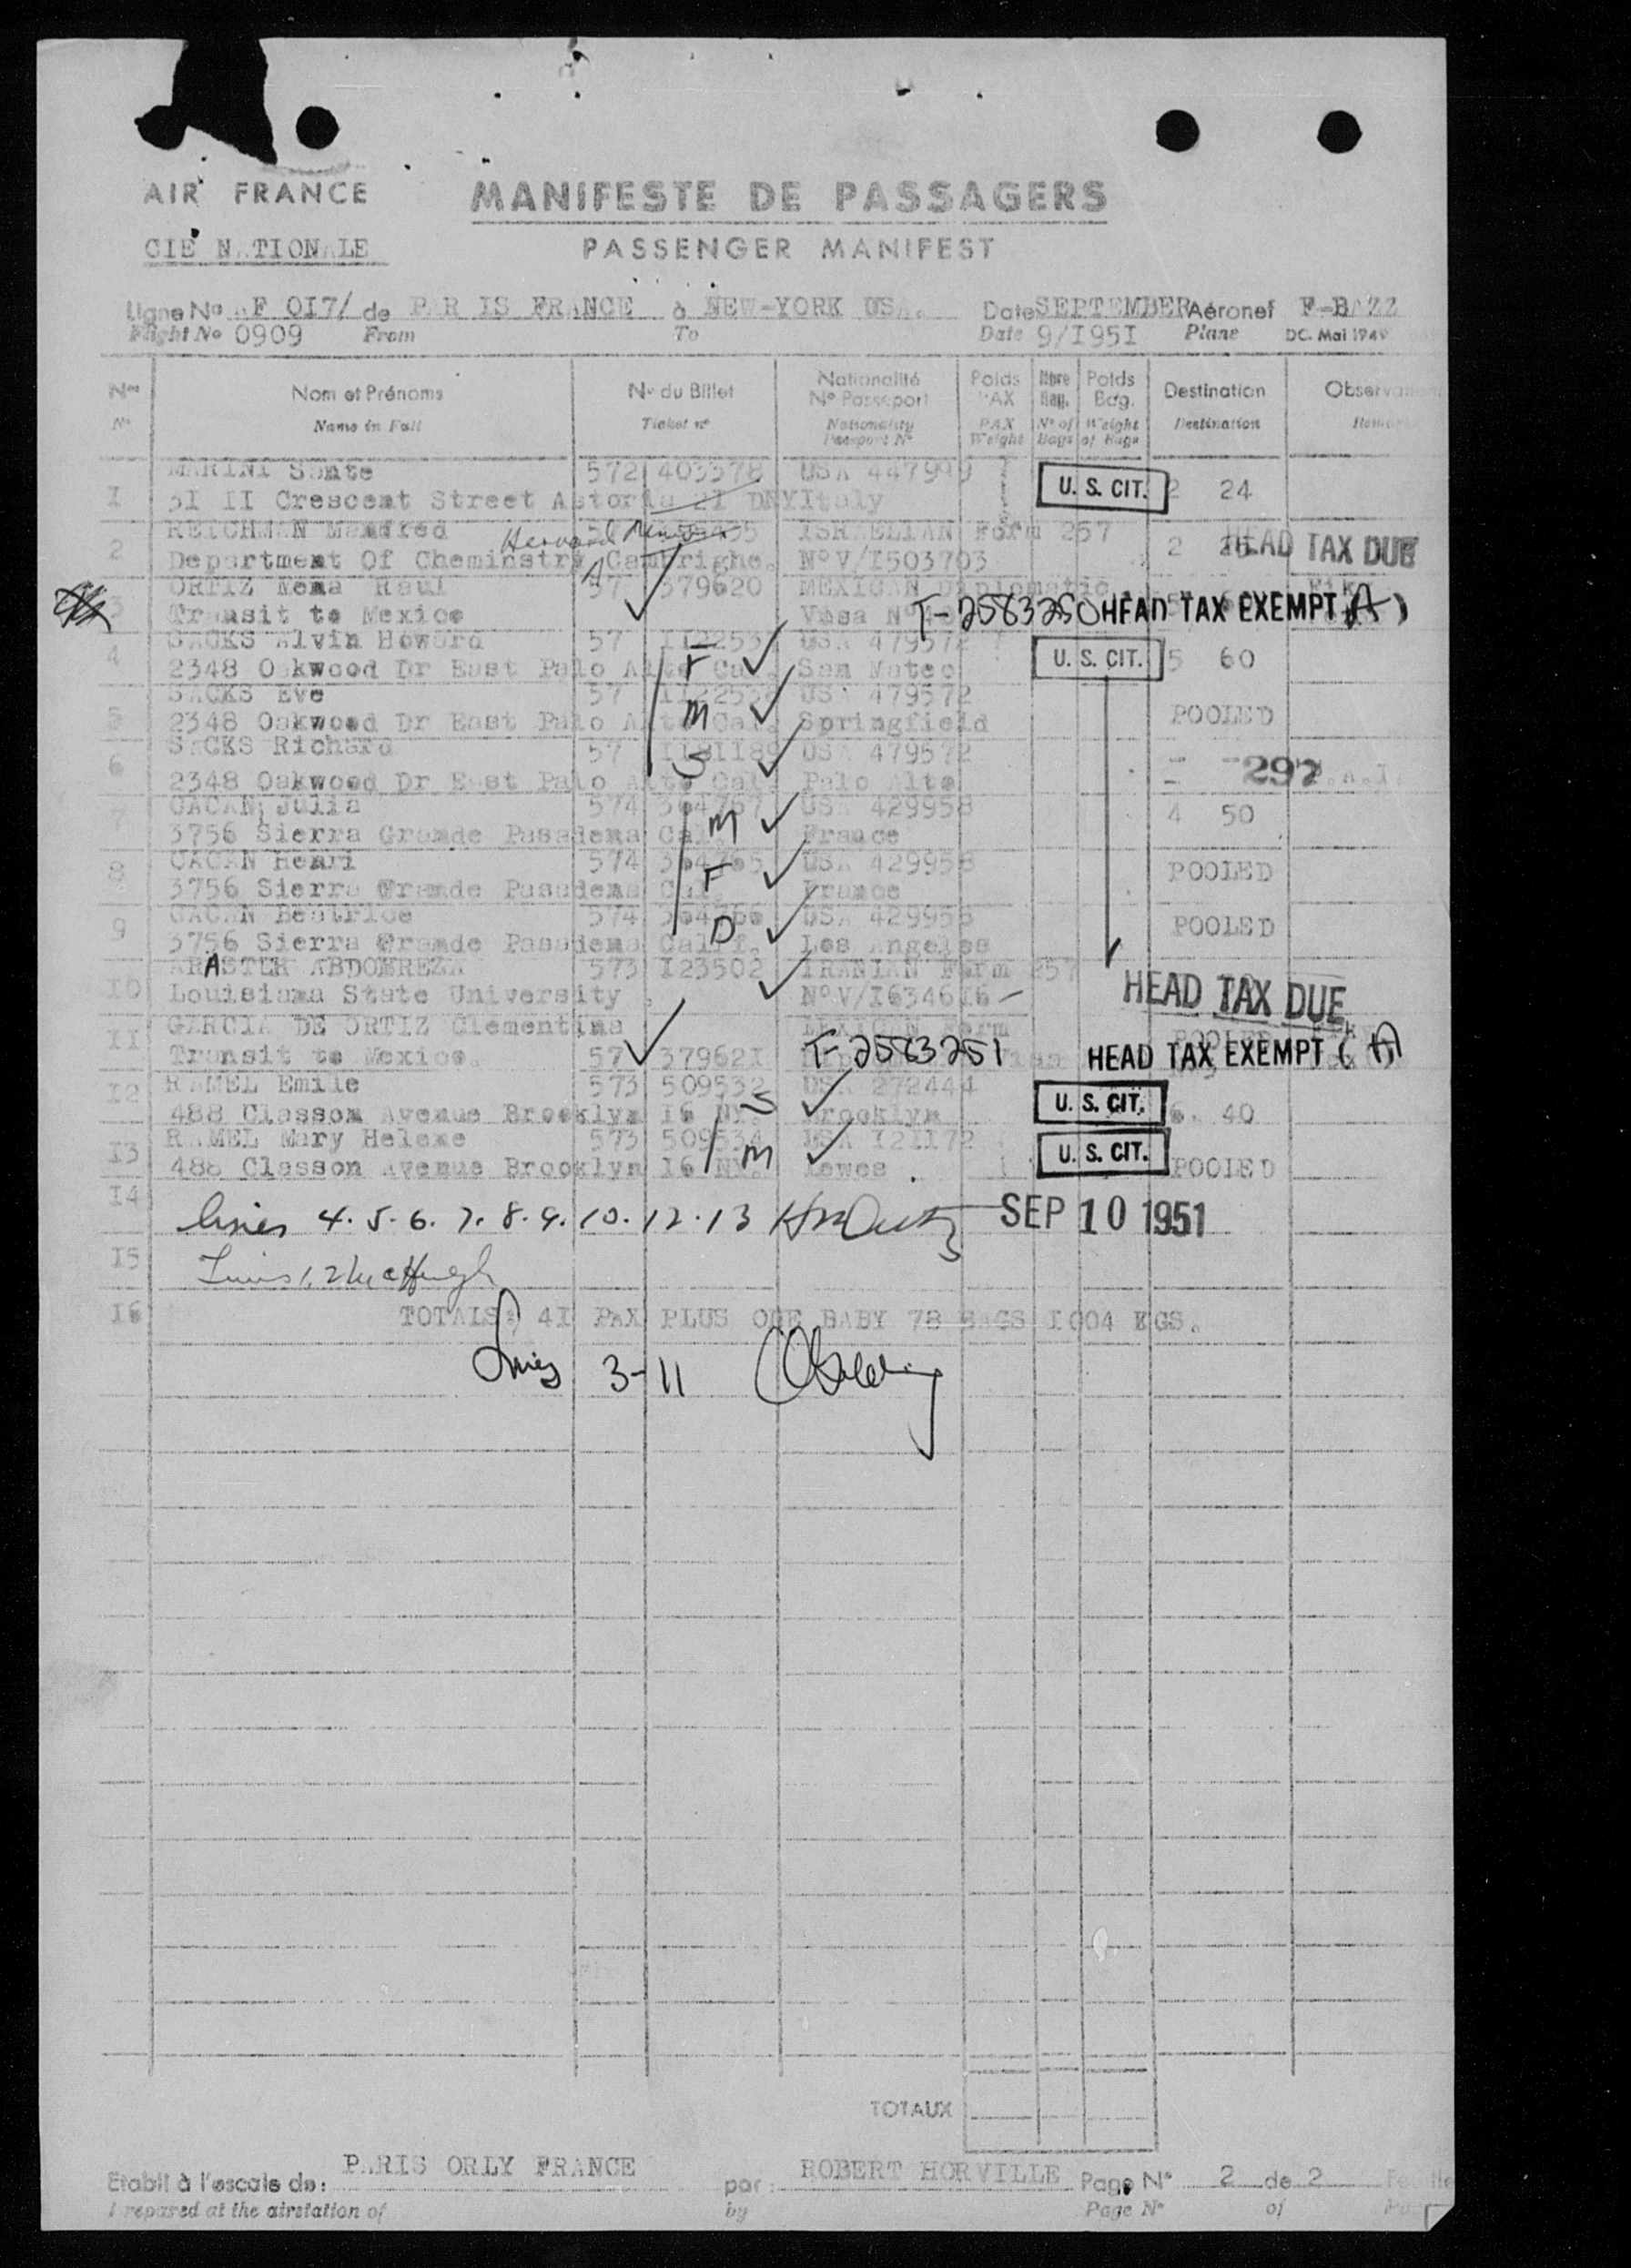 AIR FRANCE
MANIFESTE DE PASSAGERS
CIE NATIONALE
PASSENGER MANIFEST
Ligne No AF 017/ de PARIS FRANCE à NEW-YORK USA. Date SEPTEMBER Aéronef F-BAZZ
Flight No 0909 From To Date 9/I95I Plane DC. Mai 1949
Nos Nom et Prénoms No du Billet Nationalité No Passeport Poids PAX Nbre Bag. Poids Bag. Destination Observations
No Name in Full Ticket no Nationality Passport No PAX Weight No of Bags Weight of Bags Destination Remarks
I MARINI Sante 572 403378 USA 447999 U. S. CIT. 2 24
3I II Crescent Street Astoria 2I DNY Italy
2 REICHMAN Manfred ISRAELIAN Form 257 2 HEAD TAX DUE
Department Of Cheminstry Cambrighe. NoV/I503703
3 ORTIZ Mema Raul 57 379620 MEXICAN Diplomatic
Transit to Mexico Vesa No T-2583250 HEAD TAX EXEMPT (A)
4 SACKS Alvin Howard 57 II2253 USA 479572 U. S. CIT. 5 60
2348 Oakwood Dr East Palo Alto Cal. F San Mateo
5 SACKS Eve 57 II2253 USA 479572
2348 Oakwood Dr East Palo Alto Cal. M Springfield POOLED
6 SACKS Richard 57 II8II89 USA 479572
2348 Oakwood Dr East Palo Alto Cal. S Palo Alto 297
7 CACAN Julia 574 364767 USA 429958 4 50
3756 Sierra Gramde Pasadema Cal. M France
8 CACAN Henri 574 364765 USA 429958 POOLED
3756 Sierra Gramde Pasadema Cal. F France
9 CACAN Beatrice 574 364766 USA 429958 POOLED
3756 Sierra Gramde Pasadema Calif. D Los Angeles
IO ARASTEH ABDOMREZA 573 I23502 IRANIAN Form 257
Louisiama State University. NoV/I6346I6 HEAD TAX DUE
II GARCIA DE ORTIZ Clementina MEXICAN Form
Transit to Mexico. 57 37962I T-2583251 HEAD TAX EXEMPT (A)
I2 RAMEL Emile 573 509532 USA 272444 U. S. CIT. 6 40
488 Classom Avenue Brooklyn I6 NY. S Brooklyn
I3 RAMEL Mary Heleme 573 509534 USA I2II72 U. S. CIT.
488 Classon Avenue Brooklyn I6 NY. M Lewes POOLED
I4 lines 4.5.6.7.8.9.10.12.13 SEP 10 1951
I5 Lines 1, 2 McHugh
I6 TOTALS: 4I PAX PLUS ONE BABY 78 BAGS I004 KGS.
Lines 3-11
TOTAUX
Etabli à l'escale de: PARIS ORLY FRANCE par: ROBERT HORVILLE Page No 2 de 2
Prepared at the airstation of by Page No of